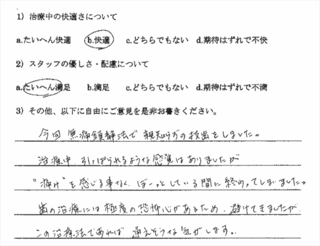 1）治療中の快適さについて
a.たいへん快適　b.快適　c.どちらでもない　d.期待はずれで不快
2）スタッフの優しさ・配慮について
a.たいへん満足　b.満足　c.どちらでもない　d.期待はずれで不満
3）その他、以下に自由にご意見を是非お書きください。
今回 無痛鎮静法で 親知らずの抜歯をしました。
治療中 引っぱられるような感覚はありましたが
"痛み"を感じる事なく ぼーっとしている間に終わってしまいました。
歯の治療には極度の恐怖心があるため 避けてきましたが
この治療法であれば 通えそうな気がします。